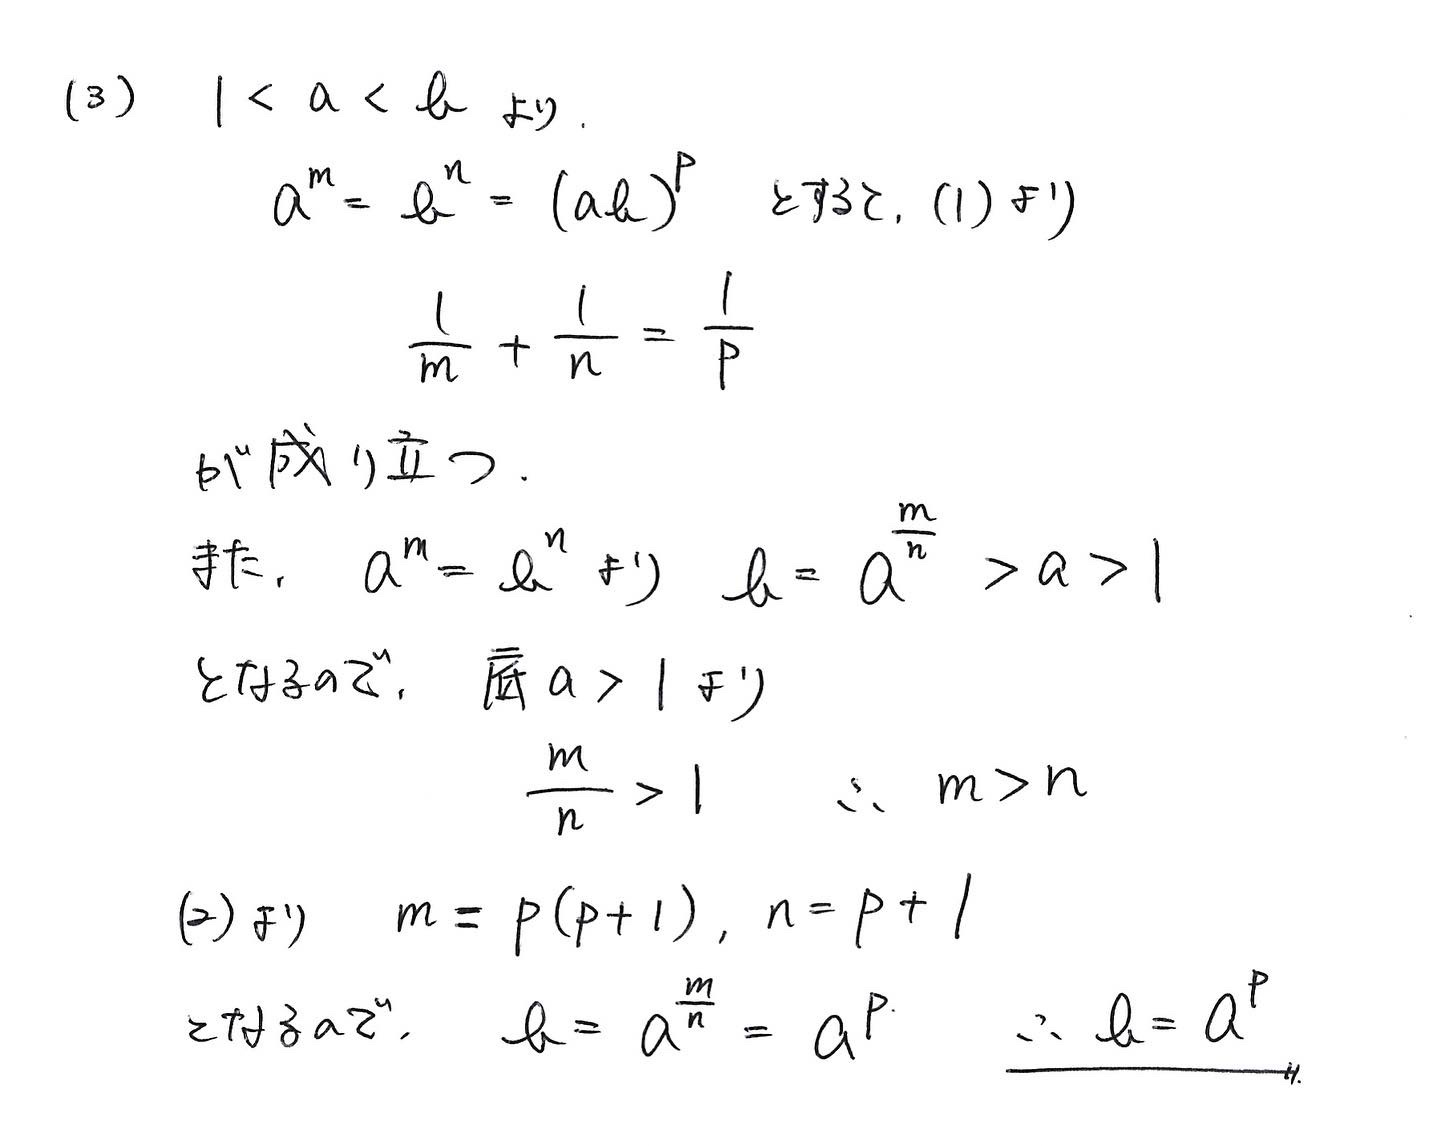 (3) 1 < a < b より.
a^m = b^n = (ab)^p とすると, (1)より
1/m + 1/n = 1/p
が成り立つ.
また, a^m = b^n より b = a^(m/n) > a > 1
となるので, 底 a > 1 より
m/n > 1 ∴ m > n
(2)より m = p(p+1), n = p+1
となるので, b = a^(m/n) = a^p. ∴ b = a^p